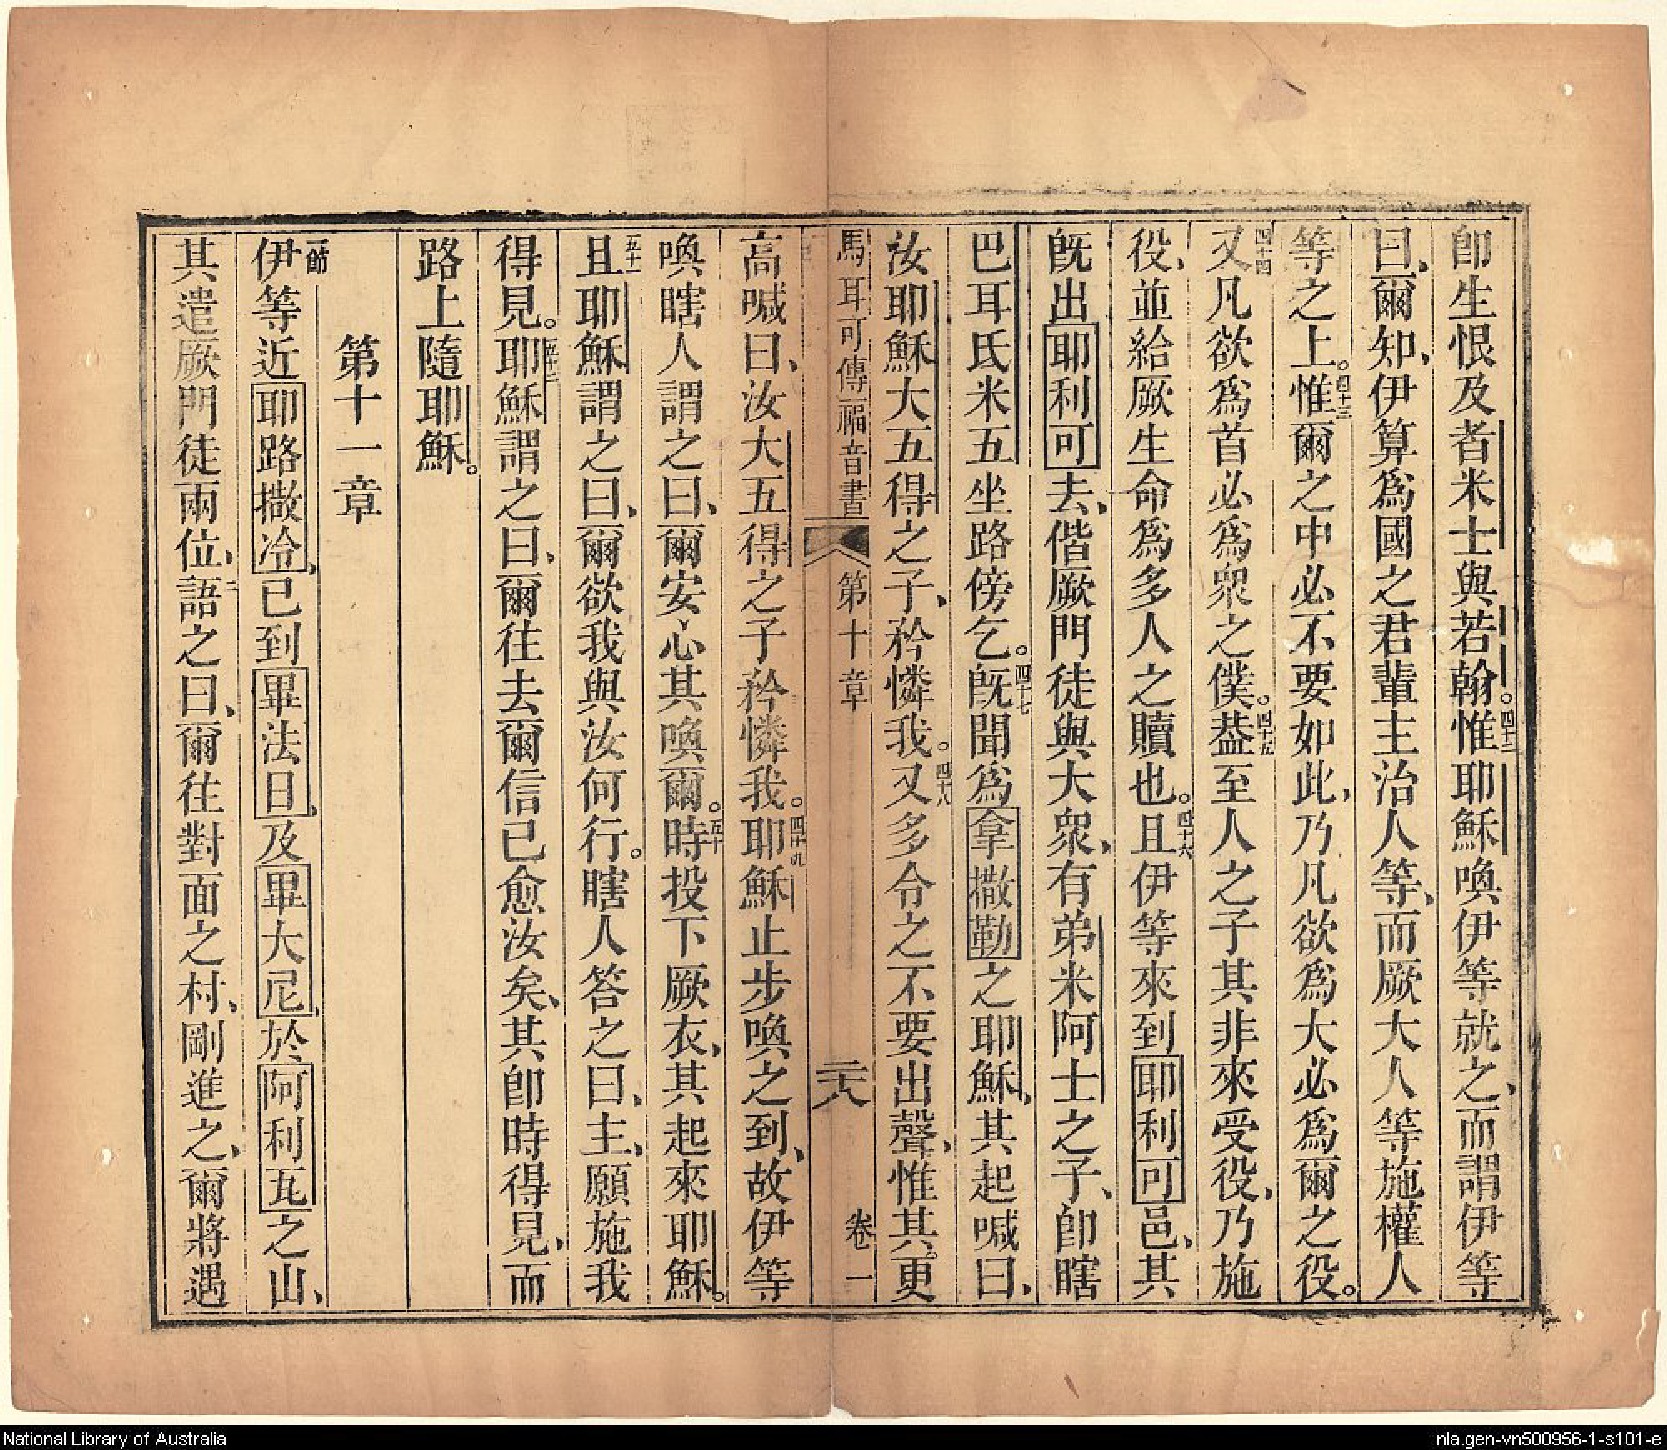 卽生恨及者米士與若翰。四十二惟耶穌喚伊等就之、而謂伊等
曰、爾知、伊算爲國之君輩主治人等、而厥大人等施權人
等之上。四十三惟爾之中必不要如此、乃凡欲爲大必爲爾之役。
四十四又凡欲爲首必爲衆之僕。四十五葢至人之子其非來受役、乃施
役、並給厥生命爲多人之贖也。四十六且伊等來到耶利可邑、其
旣出耶利可去、偕厥門徒與大衆、有弟米阿士之子、卽瞎
巴耳氏米五坐路傍乞。四十七旣聞爲拿撒勒之耶穌、其起喊曰、
汝耶穌大五得之子、矜憐我。四十八又多令之不要出聲、惟其更
馬耳可傳福音書 第十章 二十八 卷一
高喊曰、汝大五得之子矜憐我。四十九耶穌止步喚之到、故伊等
喚瞎人謂之曰、爾安心其喚爾。五十時投下厥衣、其起來耶穌。
五十一且耶穌謂之曰、爾欲我與汝何行。瞎人答之曰、主、願施我
得見。五十二耶穌謂之曰、爾往去爾信已愈汝矣、其卽時得見、而
路上隨耶穌。
第十一章
一節伊等近耶路撒冷、已到畢法日、及畢大尼、於阿利瓦之山、
其遣厥門徒兩位、二語之曰、爾往對面之村、剛進之、爾將遇
National Library of Australia
nla.gen-vn500956-1-s101-e